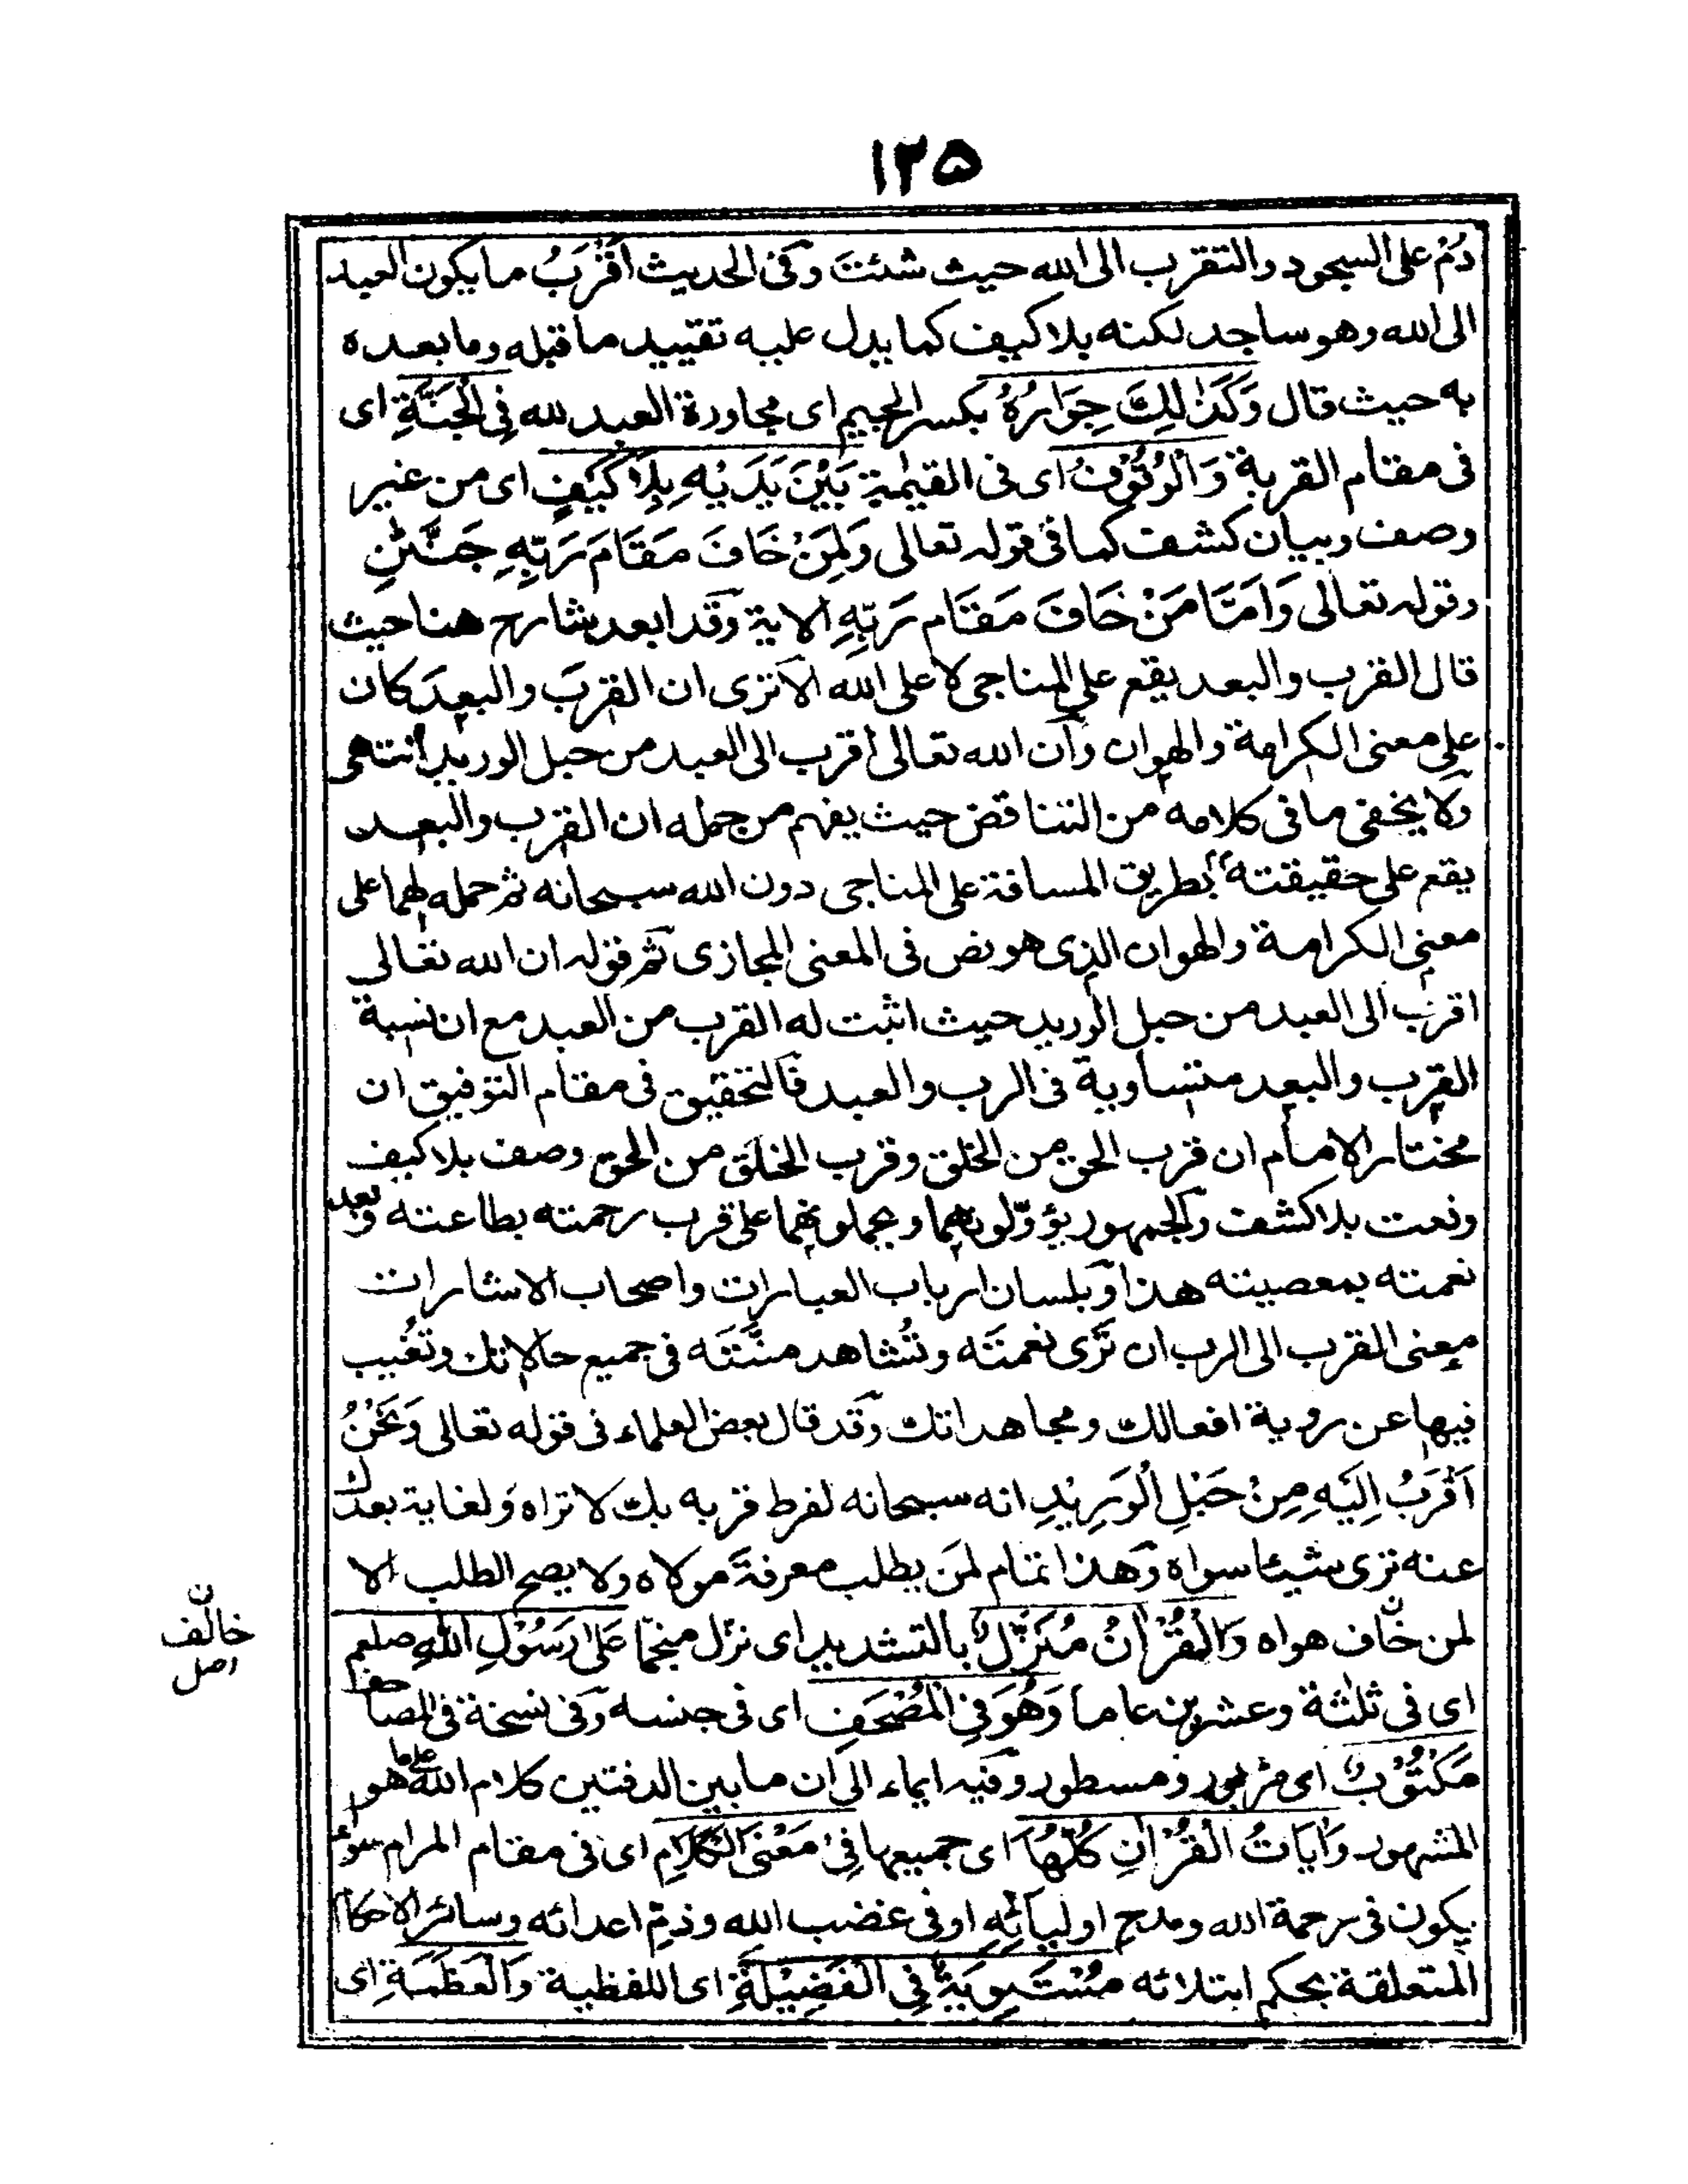 ١٢٥
دُمْ على السجود والتقرب الى الله حيث شئت وفى الحديث اَقْرَبُ ما يكون العبد
الى الله وهو ساجد لكنه بلا كيف كما يدل عليه تقييد ما قبله وما بعده
به حيث قال وَكَذٰلِكَ جِوَارُهُ بكسر الجيم اى مجاورة العبد لله فِى الْجَنَّةِ اى
فى مقام القربة وَالْوُقُوْفُ اى فى القيٰمة بَيْنَ يَدَيْهِ بِلَا كَيْفٍ اى من غير
وصف وبيان كشف كما فى قوله تعالى وَلِمَنْ خَافَ مَقَامَ رَبِّهٖ جَنَّتٰنِ
وقوله تعالى وَاَمَّا مَنْ خَافَ مَقَام رَبِّهٖ الاية وقد ابعد شارح هنا حيث
قال القرب والبعد يقع على المناجى لا على الله الا ترى ان القربَ والبعدَ كان
على معنى الكرامة والهوان وان الله تعالى اقرب الى العبد من حبل الوريد انتهى
ولا يخفى ما فى كلامه من التناقض حيث يفهم من جمله ان القرب والبعد
يقع على حقيقته بطريق المسافة على المناجى دون الله سبحانه ثم حمله لهما على
معنى الكرامة والهوان الذى هو نص فى المعنى المجازى ثم قوله ان الله تعالى
اقرب الى العبد من حبل الوريد حيث اثبت له القرب من العبد مع ان نسبة
القرب والبعد متساوية فى الرب والعبد فالتحقيق فى مقام التوفيق ان
مختار الامام ان قرب الحق من الخلق وقرب الخلق من الحق وصف بلا كيف
ونعت بلا كشف والجمهور يؤوّلونهما ويحملونهما على قرب رحمته بطاعته وبعد
نعمته بمعصيته هذا وبلسان ارباب العبارات واصحاب الاشارات
معنى القرب الى الرب ان تَرى نعمتَه وتُشاهد منّتَه فى جميع حالاتك وتغيب
فيها عن روية افعالك ومجاهداتك وقد قال بعض العلماء فى قوله تعالى وَنَحْنُ
اَقْرَبُ اِلَيْهِ مِنْ حَبْلِ الْوَرِيْدِ انه سبحانه لفرط قربه بك لا تراه ولغاية بعدك
عنه ترى شيئا سواه وهذا تمام لمن يطلب معرفة مولاه ولا يصح الطلب الا
لمن خاف هواه وَالْقُرْاٰنُ مُنَزَّلٌ بالتشديد اى نزل منجّما عَلٰى رَسُوْلِ اللّٰهِ صلعم
اى فى ثلٰثة وعشرين عاما وَهُوَ فِى الْمُصْحَفِ اى فى جنسه وفى نسخة فى المصاحف
مَكْتُوْبٌ اى مزبور ومسطور وفيه ايماء الى ان ما بين الدفتين كلام الله على ما هو
المشهور وَاٰيَاتُ الْقُرْاٰنِ كُلُّهَا اى جميعها فِىْ مَعْنَى الْكَلَامِ اى فى مقام المرام سواء
يكون فى رحمة الله ومدح اوليائه او فى غضب الله وذم اعدائه وسائر الاحكام
المتعلقة بحكم ابتلائه مُسْتَوِيَةٌ فِى الْفَضِيْلَةِ اى اللفظية وَالْعَظَمَةِ اى
ن
خالف
اصل